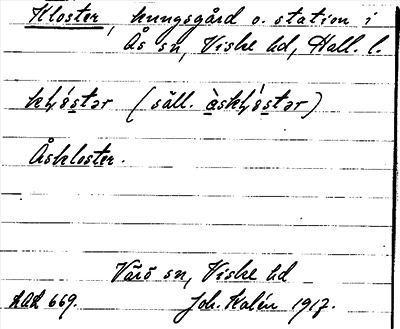 Kloster, kungsgård o. station i
Ås sn, Viske hd, Hall. l.
(säll.
Åskloster.
Värö sn, Viske hd
669. Joh. Kalén 1917.